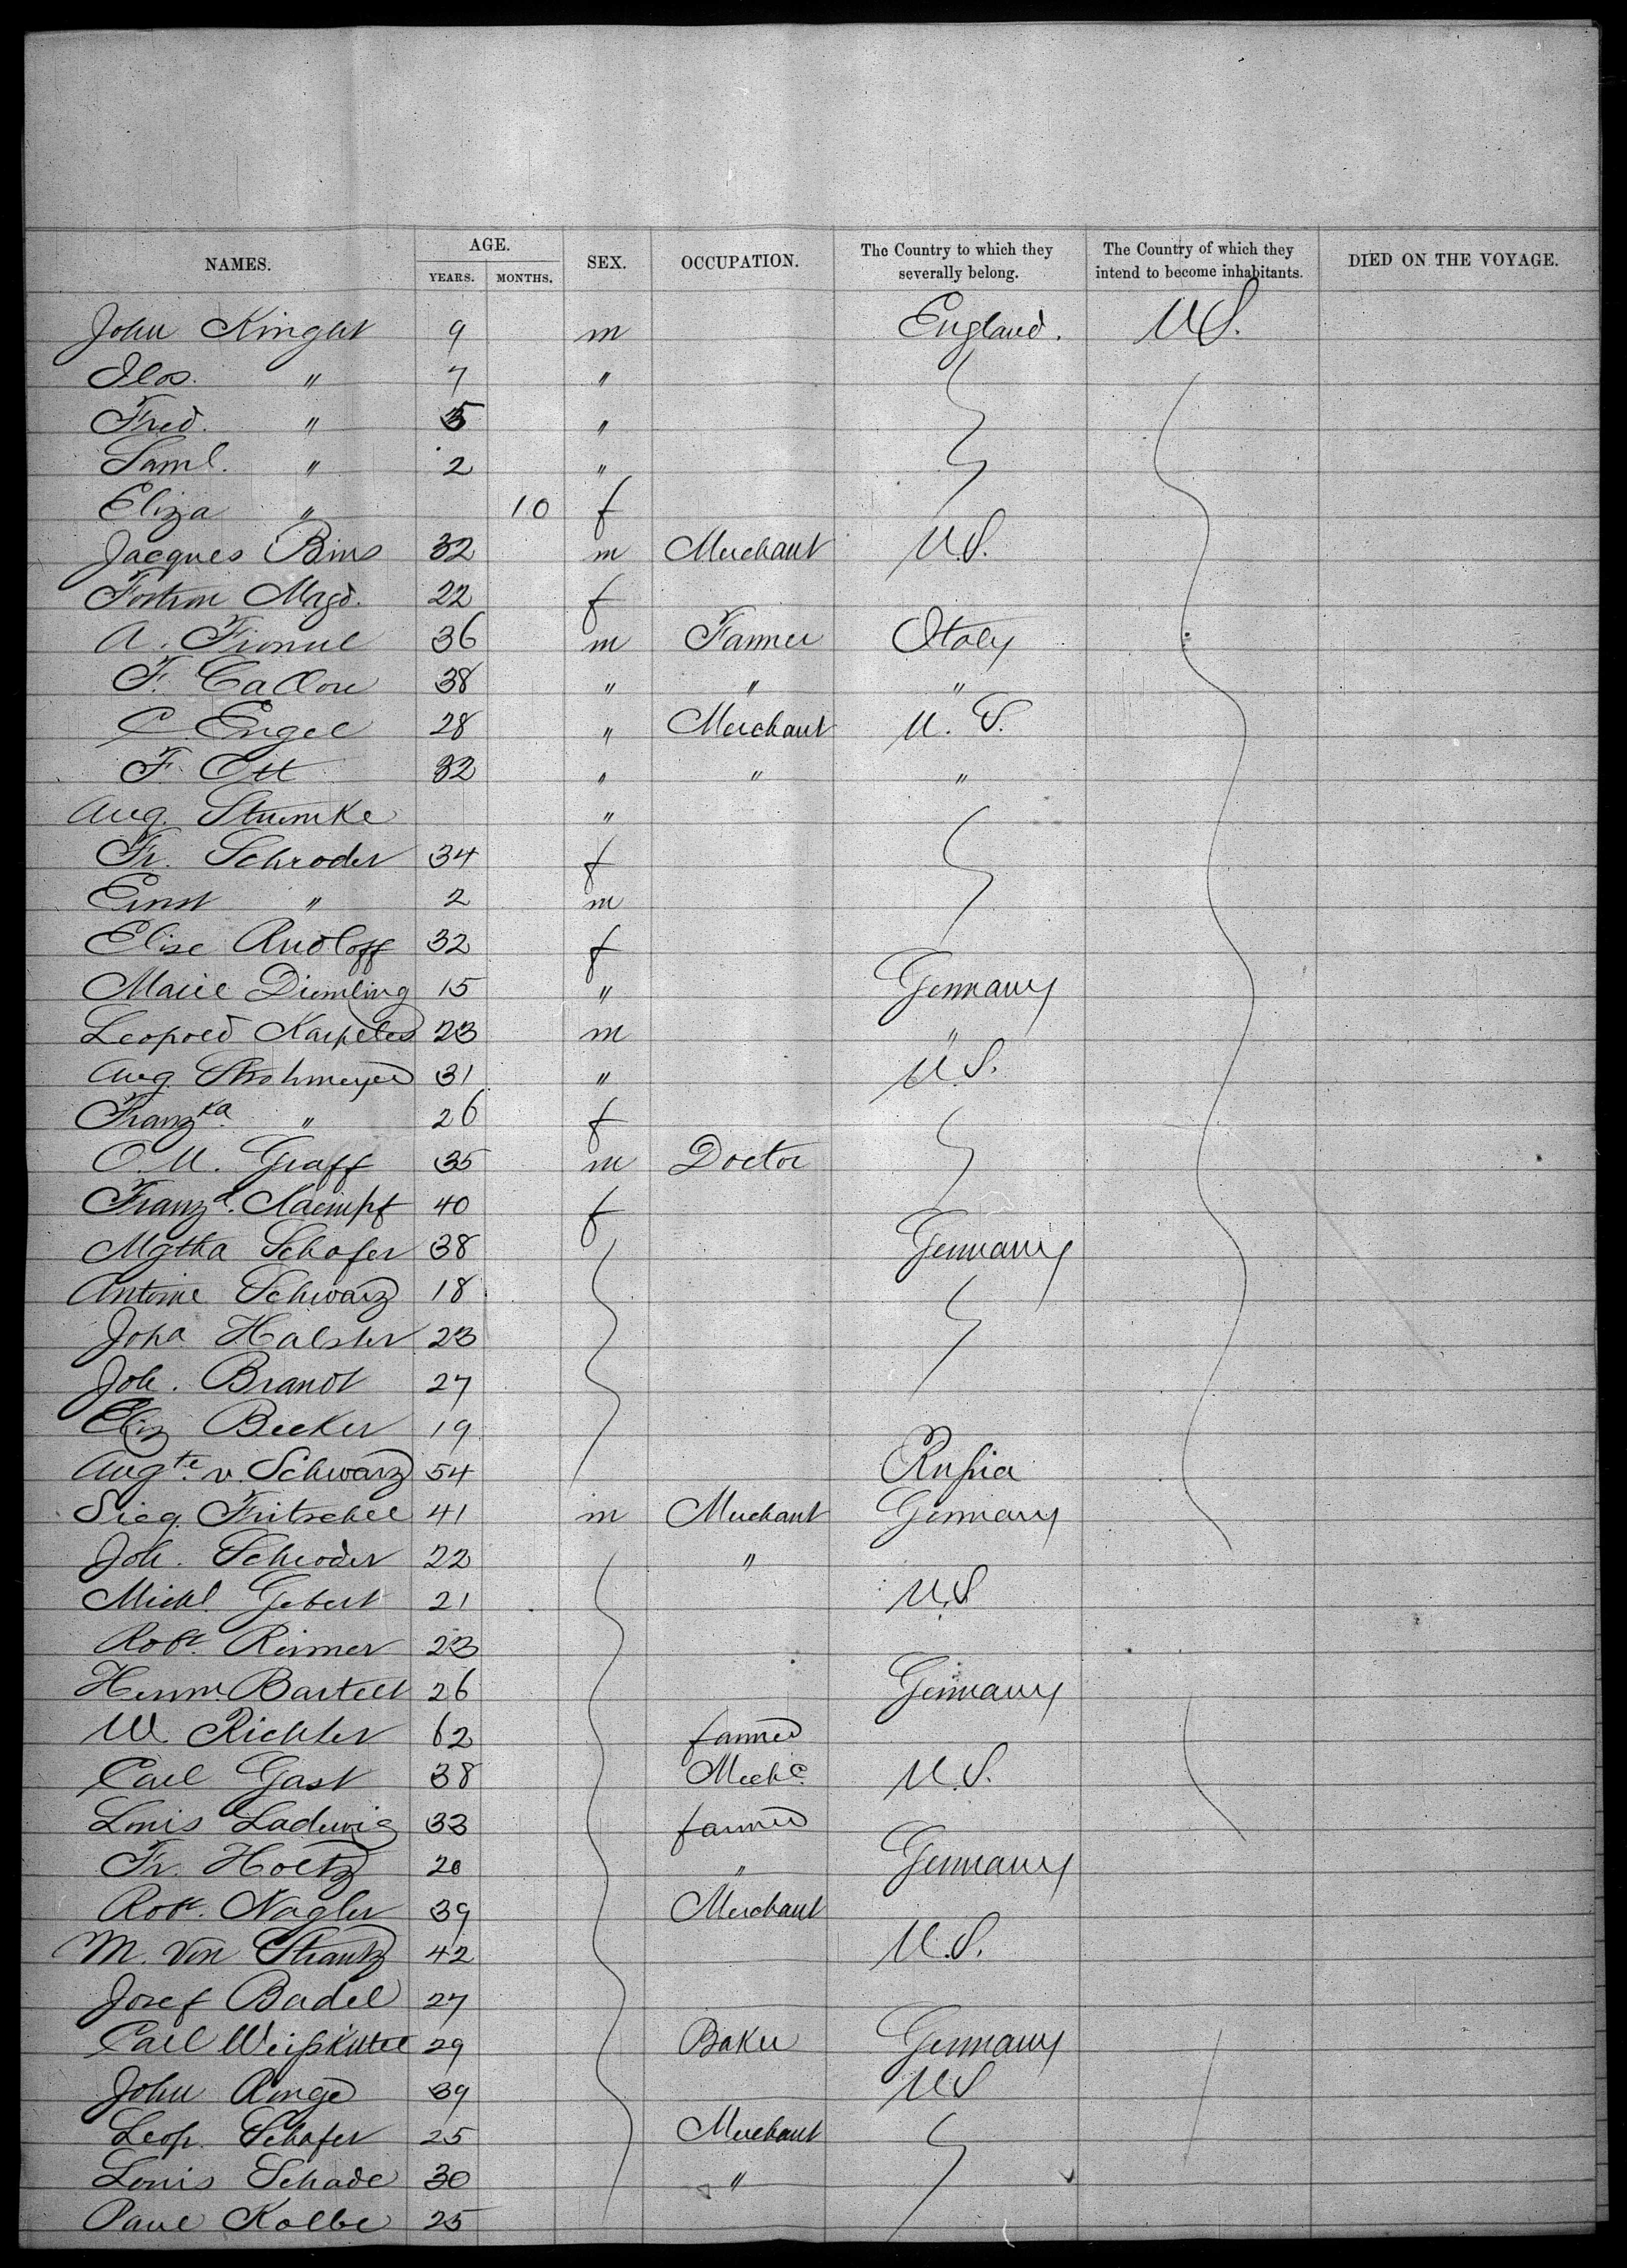 NAMES. AGE. YEARS. MONTHS. SEX. OCCUPATION. The Country to which they severally belong. The Country of which they intend to become inhabitants. DIED ON THE VOYAGE.
John Kinght 9 m England. U.S.
" 7 "
Fred. " 5 "
Saml. " 2 "
Eliza " 10 f
Jacques Bins 32 m Merchant U.S.
Magd. 22 f
A. 36 m Farmer Italy
F. 38 " " "
C. Engel 28 " Merchant U.S.
F. Ott 32 " " "
Aug. Stumke "
Fr. Schroder 34 f
Ernst " 2 m
Elise Rudloff 32 f
Marie Diemling 15 " Germany
Leopold Karpeles 23 m "
Aug. Strohmeyer 31 " U.S.
Franzka. " 26 f
O. M. Graff 35 m Doctor
Franza. 40 f
Mgtha Schafer 38 Germany
Antoine Schwarz 18
Joha Halster 23
Joh. Brandt 27
Eliz Becker 19
Augte. v. Schwarz 54 Rußia
Sieg. Fritschel 41 m Merchant Germany
Joh. Schroder 22 "
Michl. Gebert 21 U.S
Robt. Rimer 23
Herm. Bartell 26 Germany
W. Richter 62 farmer
Carl Gast 38 Mechc. U.S.
Louis Ladwig 33 farmer
Fr. Holtz 20 " Germany
Robt. Nagler 39 Merchant
M. Von Strantz 42 U.S.
Josef Badel 27
Carl Weißkittel 29 Baker Germany
John Ringe 39 U.S
Leop. Schafer 25 Merchant
Louis Schade 30 "
Paul Kolbe 25